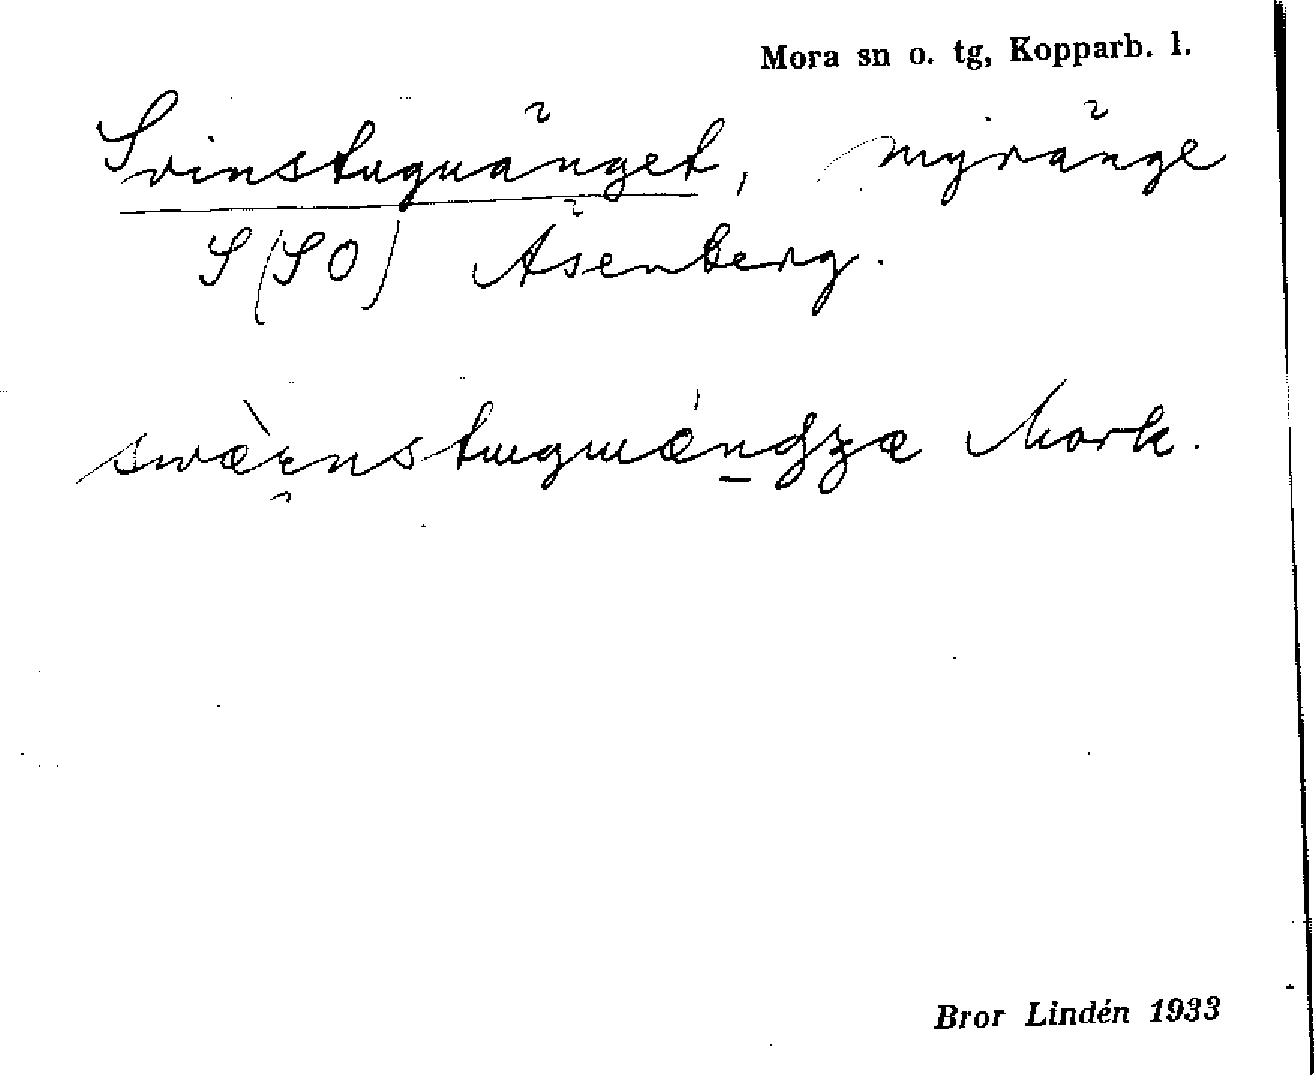 Mora sn o. tg, Kopparb. l.
Svinstuguänget, myränge
S (SO) Åsenberg.
Mork.
Bror Lindén 1933